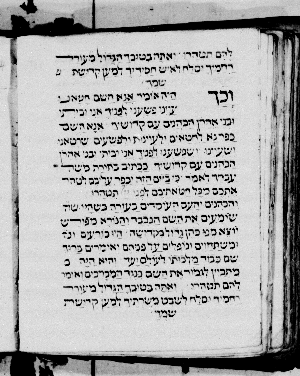 להם תטהרו ואתה בטובך הגדול מעורר
רחמיך וסולח לאיש חסידיך למען קדושת
שמך
וכך היה אומר אנא השם חטאתי
עויתי פשעתי לפניך אני וביתי
ובני אהרן הכהנים עם קדושיך אנא השם
כפר נא לחטאים ולעונות ולפשעים שחטאתי
ושעויתי ושפשעתי לפניך אני וביתי ובני אהרן
הכהנים עם קדושיך ככתוב בתורת משה
עבדך לאמר כי ביום הזה יכפר עליכם לטהר
אתכם מכל חטאתיכם לפני תטהרו
והכהנים והעם העומדים בעזרה כשהיו
שומעים את השם הנכבד והנורא מפורש
יוצא מפי כהן גדול בקדושה היו כורעים
ומשתחוים ונופלים על פניהם ואומרים ברוך
שם כבוד מלכותו לעולם ועד והוא היה
מתכוין לגמור את השם כנגד המברכים ואומר
להם תטהרו ואתה בטובך הגדול מעורר
רחמיך וסולח לשבט משרתיך למען קדושת
שמך